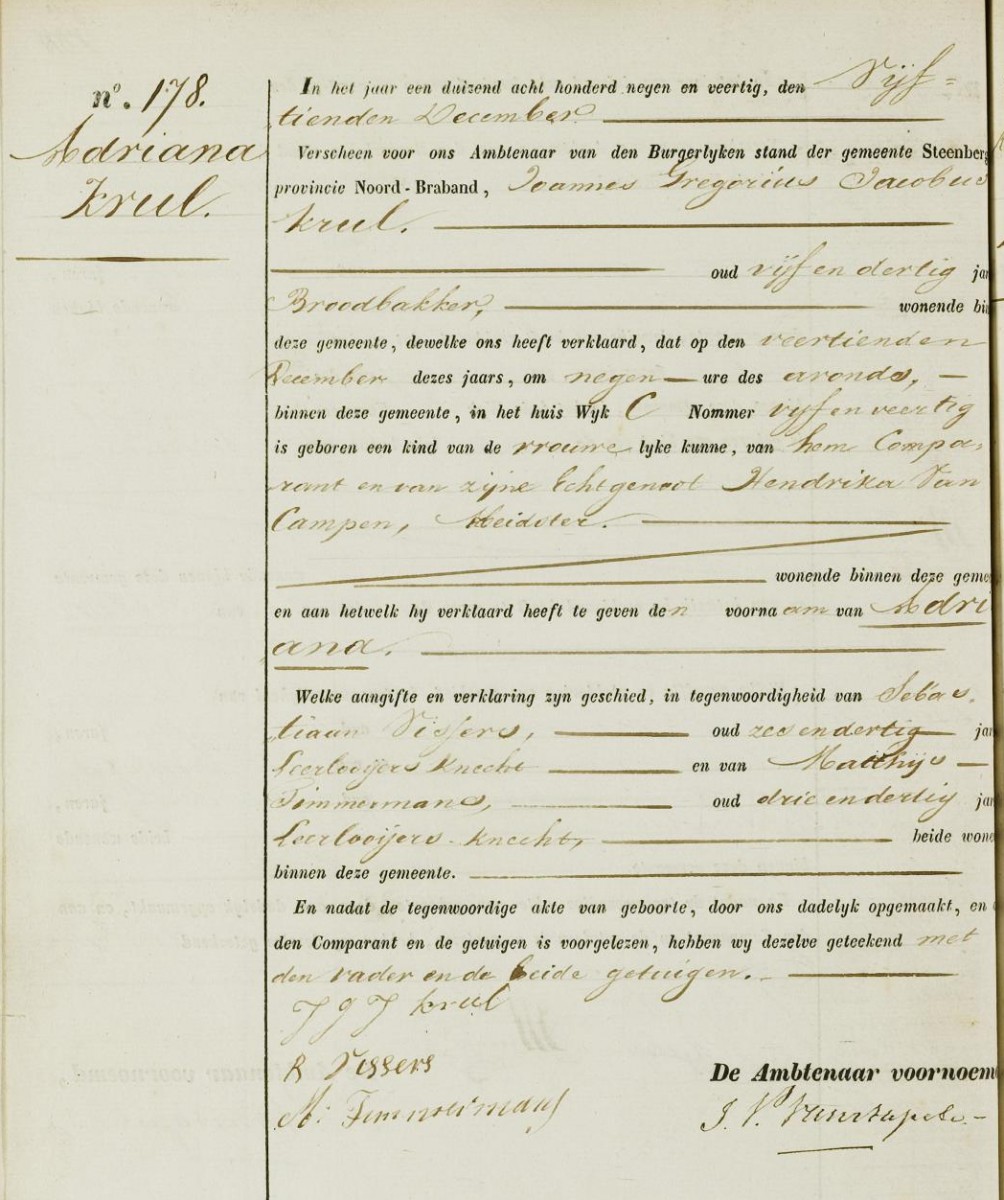 n°. 178.
Adriana
Krul.
In het jaar een duizend acht honderd negen en veertig, den Vijf=
tienden December
Verscheen voor ons Ambtenaar van den Burgerlyken stand der gemeente Steenberg
provincie Noord-Braband, Joannes Gregorius Jacobus
Krul.
oud vijf en dertig jar
Broodbakker, wonende bin
deze gemeente, dewelke ons heeft verklaard, dat op den veertienden
December dezes jaars, om negen ure des avonds,
binnen deze gemeente, in het huis Wyk C Nommer vyf en veertig
is geboren een kind van de vrouwe lyke kunne, van hem Compa=
rant en van zijne Echtgenoot Hendrika Van
Campen, Meidster.
wonende binnen deze geme
en aan hetwelk hy verklaard heeft te geven den voornaam van Adri
ana.
Welke aangifte en verklaring zyn geschied, in tegenwoordigheid van Sebas=
tiaan Vissers, oud zes en dertig jar
Leerlooijers knecht en van Matthijs
Timmermans, oud drie en dertig jar
Leerlooijers knecht, beide wone
binnen deze gemeente.
En nadat de tegenwoordige akte van geboorte, door ons dadelyk opgemaakt, en
den Comparant en de getuigen is voorgelezen, hebben wy dezelve geteekend met
den vader en de beide getuigen.
J G J Krul
Vissers
M: Timmermans
De Ambtenaar voornoem
J. V.